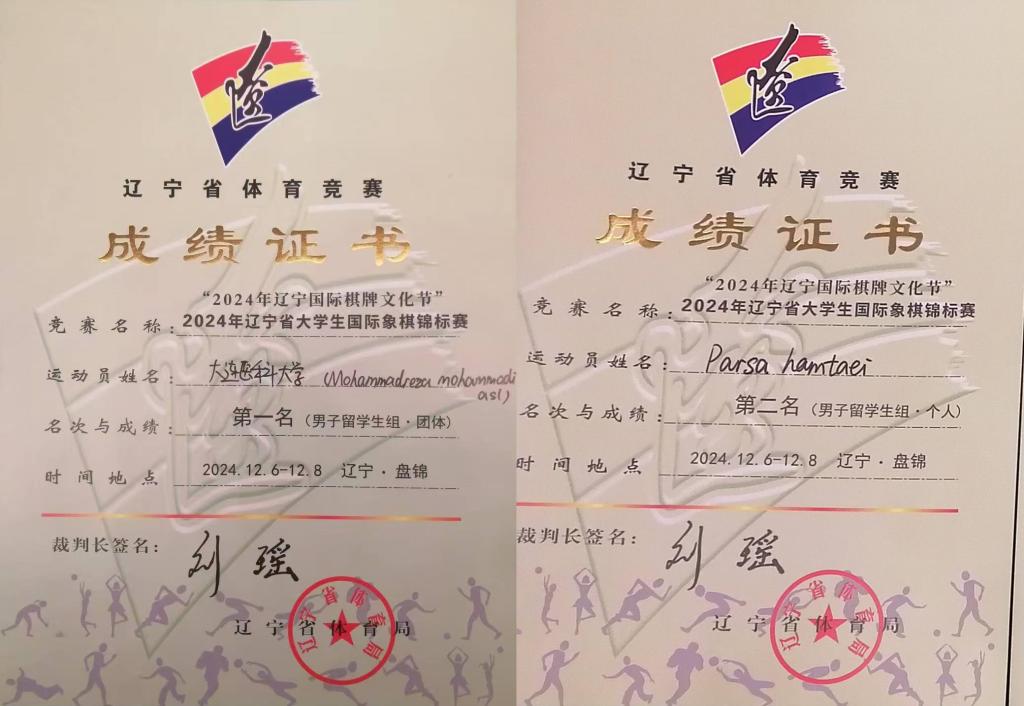 辽
辽宁省体育竞赛
成绩证书
“2024年辽宁国际棋牌文化节”
竞赛名称:2024年辽宁省大学生国际象棋锦标赛
运动员姓名:大连医科大学 (Mohammadreza mohammadi
asl)
名次与成绩:第一名(男子留学生组·团体)
时间地点 2024.12.6-12.8 辽宁·盘锦
裁判长签名:刘瑶
辽宁省体育局
辽宁省体育局
辽
辽宁省体育竞赛
成绩证书
“2024年辽宁国际棋牌文化节”
竞赛名称:2024年辽宁省大学生国际象棋锦标赛
运动员姓名:Parsa hamtaei
名次与成绩:第二名(男子留学生组·个人)
时间地点 2024.12.6-12.8 辽宁·盘锦
裁判长签名:刘瑶
辽宁省体育局
辽宁省体育局